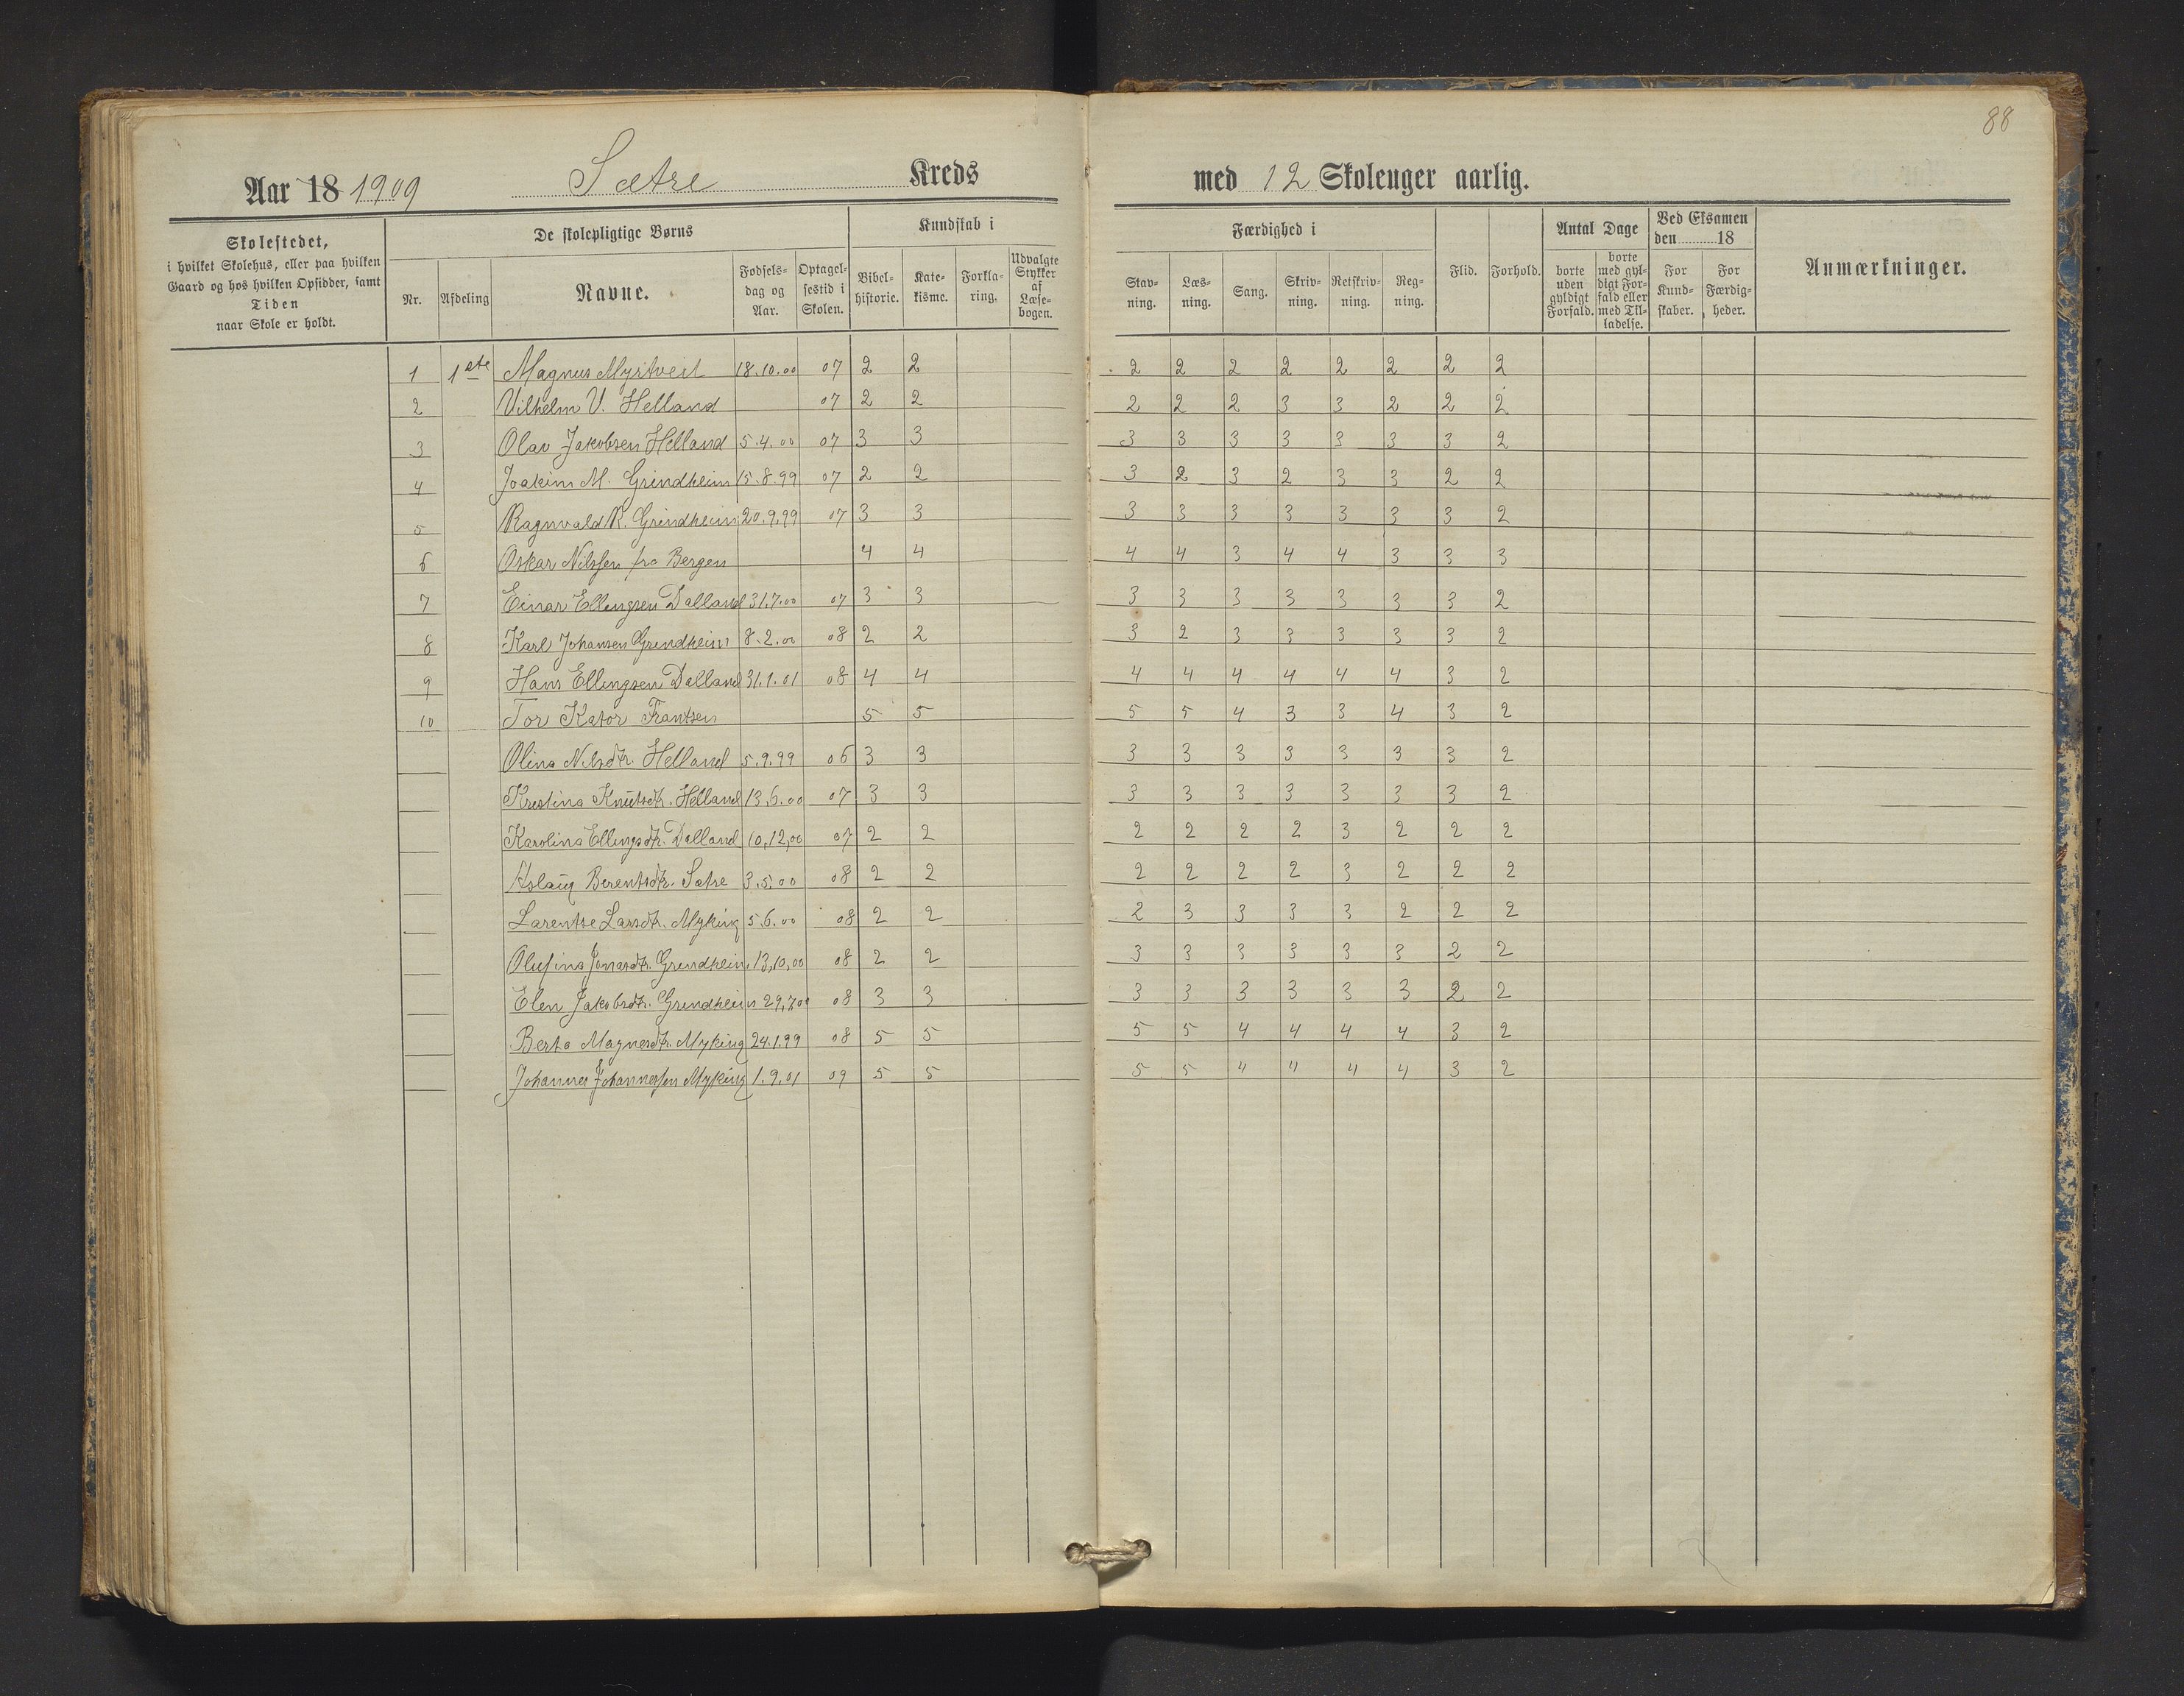 88
Aar 18 1909 Sætre Kreds med 12 Skoleuger aarlig.
Skolestedet, i hvilket Skolehus, eller paa hvilken Gaard og hos hvilken Opsidder, samt Tiden naar Skole er holdt.
De skolepligtige Børns
Nr. Afdeling Navne. Fødselsdag og Aar. Optagelsestid i Skolen.
Kundskab i
Bibelhistorie. Katekisme. Forklaring. Udvalgte Stykker af Læsebogen.
Færdighed i
Stavning. Læsning. Sang. Skrivning. Retskrivning. Regning.
Flid. Forhold.
Antal Dage
borte uden gyldigt Forfald. borte med gyldigt Forfald eller med Tilladelse.
Ved Eksamen den 18
For Kundskaber. For Færdigheder.
Anmærkninger.
1 1ste Magnus Myrtveit 18.10.00 07 2 2 2 2 2 2 2 2 2 2
2 Vilhelm V. Helland 07 2 2 2 2 2 3 3 2 2 2
3 Olav Jakobsen Helland 5.4.00 07 3 3 3 3 3 3 3 3 3 2
4 Joakim M. Grindheim 15.8.99 07 2 2 3 2 3 2 3 3 2 2
5 Ragnvald R. Grindheim 20.9.99 07 3 3 3 3 3 3 3 3 3 2
6 Oskar Nilssen fra Bergen 4 4 4 4 3 4 4 3 3 3
7 Einar Ellingsen Dalland 31.7.00 07 3 3 3 3 3 3 3 3 3 2
8 Karl Johansen Grindheim 8.2.00 08 2 2 3 2 3 3 3 3 3 2
9 Hans Ellingsen Dalland 31.1.01 08 4 4 4 4 4 4 4 4 3 2
10 Tor Kator Frantsen 5 5 5 5 4 3 3 4 3 2
Olina Nilsdtr. Helland 5.9.99 06 3 3 3 3 3 3 3 3 3 2
Kristina Knutsdtr. Helland 13.6.00 07 3 3 3 3 3 3 3 3 3 2
Karolina Ellingsdtr. Dalland 10,12,00 07 2 2 2 2 2 2 3 2 2 2
Aslaug Berentsdtr. Sætre 3.5.00 08 2 2 2 2 2 2 3 2 2 2
Larentse Larsdtr. Myking 5.6.00 08 2 2 2 3 3 3 3 2 2 2
Olufina Jonasdtr. Grindheim 13,10,00 08 2 2 3 3 3 3 3 3 2 2
Elen Jakobsdtr. Grindheim 29,7,00 08 3 3 3 3 3 3 3 3 2 2
Berta Magnesdtr. Myking 24.1.99 08 5 5 5 5 4 4 4 4 3 2
Johannes Johannessen Myking 1.9.01 09 5 5 5 5 4 4 4 4 3 2